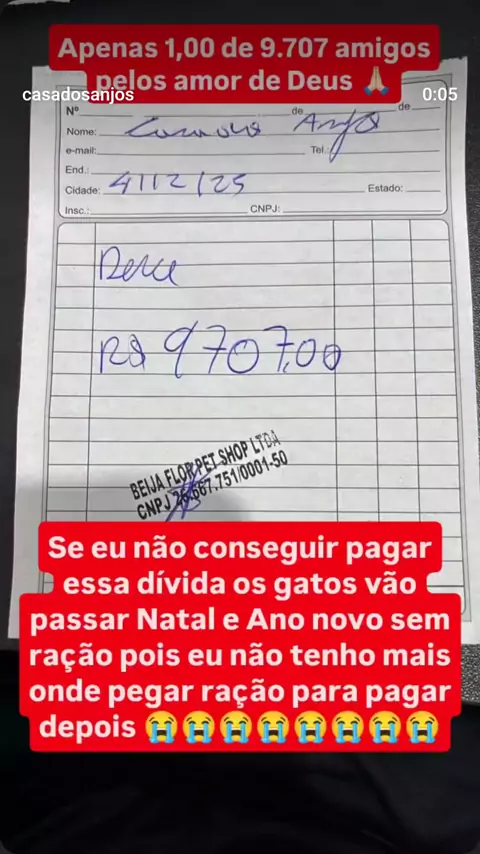 Apenas 1,00 de 9.707 amigos
pelos amor de Deus 🙏🏻
casadosanjos 0:05
Nº de de
Nome: Casa dos Anjos
e-mail: Tel.:
End.:
Cidade: 4112/25 Estado:
Insc.: CNPJ:
Deve
R$ 9707,00
BEIJA FLOR PET SHOP LTDA
CNPJ 26.667.751/0001-50
Se eu não conseguir pagar
essa dívida os gatos vão
passar Natal e Ano novo sem
ração pois eu não tenho mais
onde pegar ração para pagar
depois 😭😭😭😭😭😭😭😭